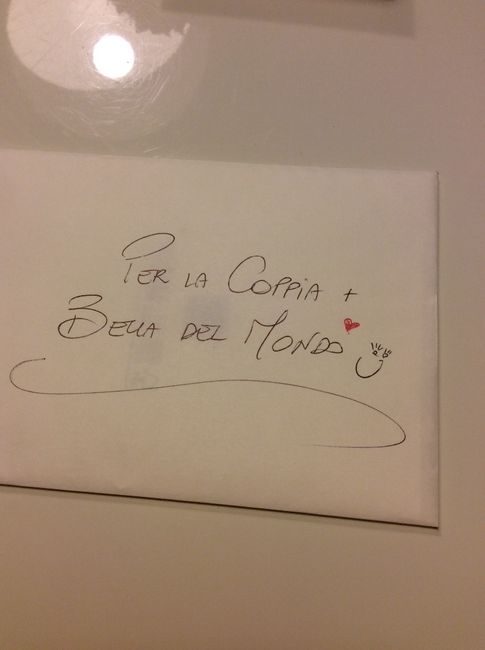 Per la Coppia +
Bella del Mondo